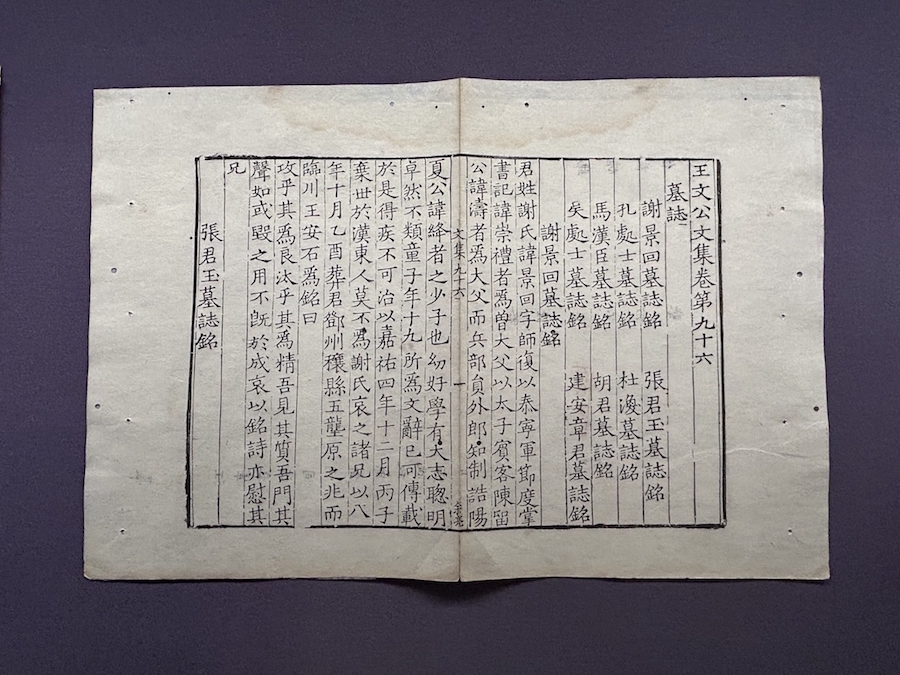 王文公文集卷第九十六
墓誌
謝景回墓誌銘 張君玉墓誌銘
孔處士墓誌銘 杜渙墓誌銘
馬漢臣墓誌銘 胡君墓誌銘
矦處士墓誌銘 建安章君墓誌銘
謝景回墓誌銘
君姓謝氏諱景回字師復以泰寧軍節度掌
書記諱崇禮者爲曽大父以太子賓客陳留
公諱濤者爲大父而兵部貟外郎知制誥陽
文集九十六
一
夏公諱絳者之少子也幼好學有大志聰明
卓然不類童子年十九所爲文辭已可傳載
於是得疾不可治以嘉祐四年十二月丙子
棄丗於漢東人莫不爲謝氏哀之諸兄以八
年十月乙酉葬君鄧州穰縣五壟原之兆而
臨川王安石爲銘曰
攻乎其爲良汰乎其爲精吾見其質吾門其
聲如或毀之用不旣於成哀以銘詩亦慰其
兄
張君玉墓誌銘